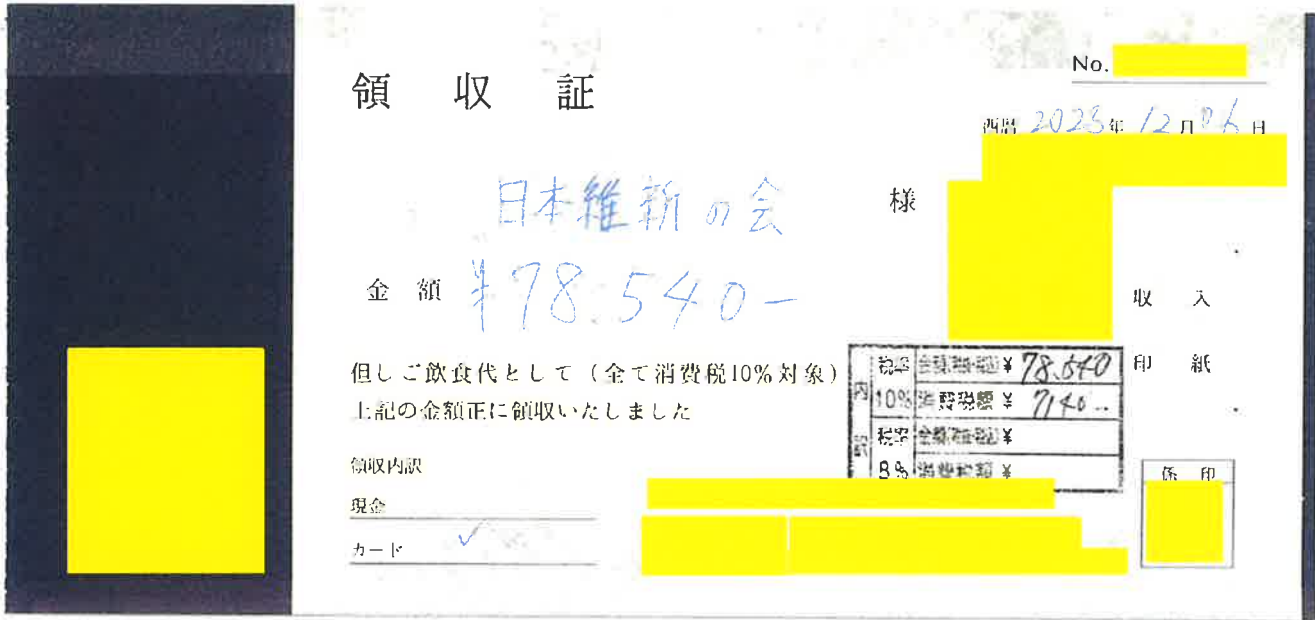 領収証
No.
西暦 2023年 12月 06日
日本維新の会 様
金額 ¥78.540-
収入
印紙
但しご飲食代として（全て消費税10%対象）
上記の金額正に領収いたしました
内訳
税率 10% 金額(税抜・税込) ¥ 78.540
消費税額 ¥ 7140-
税率 8% 金額(税抜・税込) ¥
消費税額 ¥
領収内訳
現金
カード ✓
係印